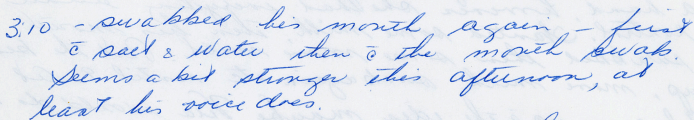 3:10 - swabbed his mouth again - first
c̄ salt & water then c̄ the mouth swab.
Seems a bit stronger this afternoon, at
least his voice does.